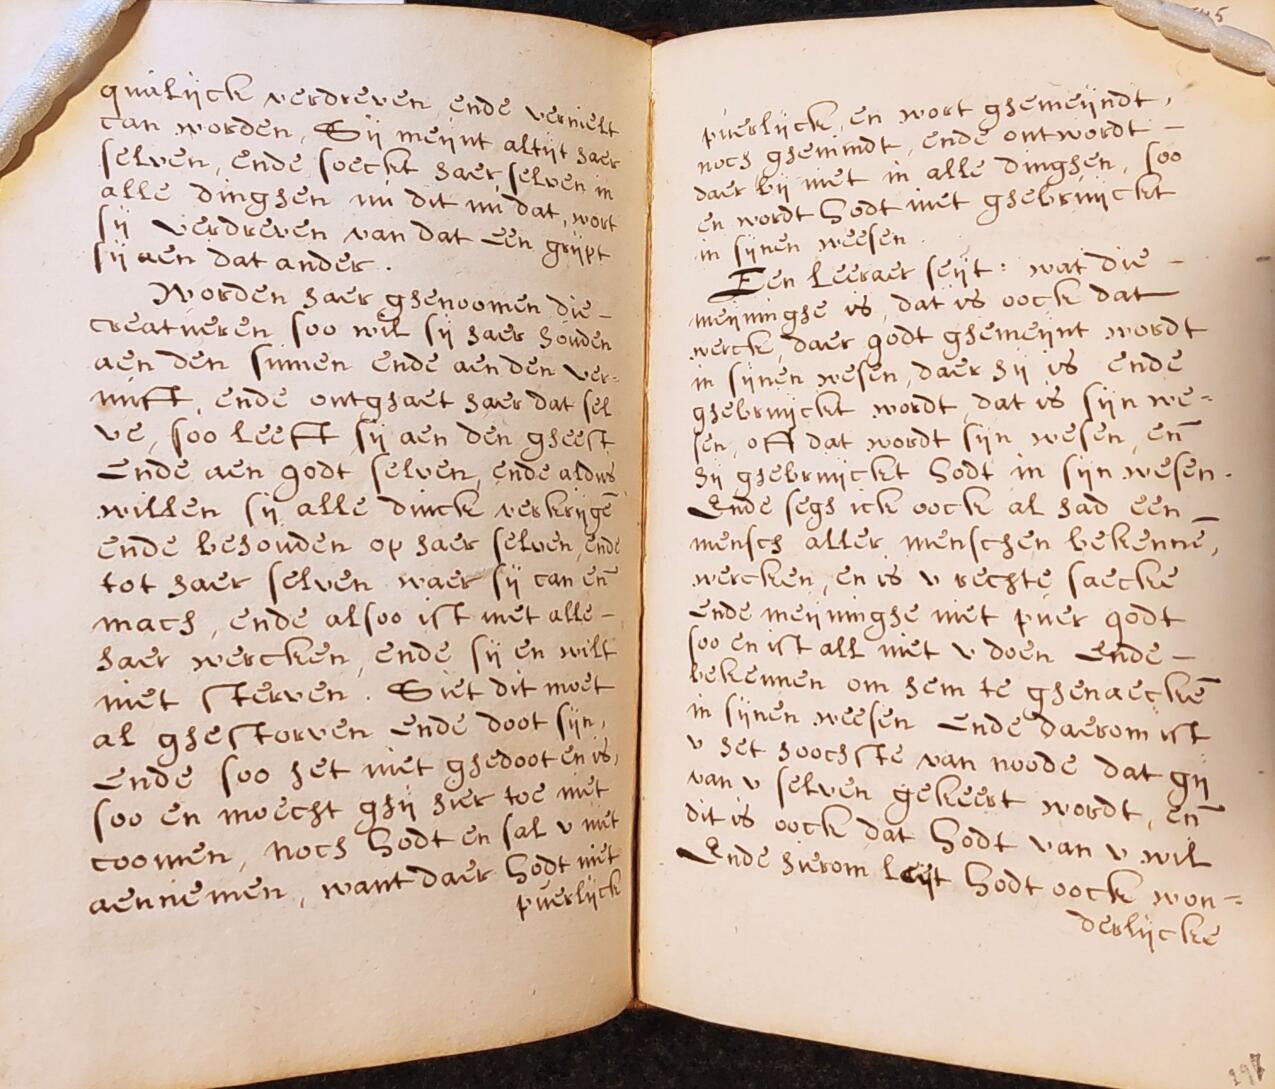 qualijck verdreven ende vernielt
can worden, Sij meijnt altijt haer
selven, ende soeckt haer selven in
alle dinghen nu dit nu dat, wort
sij verdreven van dat een grijpt
sij aen dat ander.
Worden haer ghenoomen die
creatueren soo wil sij haer houden
aen den sinnen ende aen den ver-
nuft, ende ontghaet haer dat sel
ve, soo leeft sij aen den gheest
Ende aen godt selven, ende aldus
willen sij alle dinck verkrijgē
ende behouden op haer selven, ende
tot haer selven waer sij can en̄
mach, ende alsoo ist met alle
haer wercken, ende sij en wilt
niet sterven. Siet dit moet
al ghestorven ende doot sijn,
Ende soo het niet ghedoot en is,
soo en moecht ghij hier toe niet
coomen, noch Godt en sal v niet
aennemen, want daer Godt niet
puerlijck
puerlijck, en wort ghemeijndt,
noch ghemindt, ende ontwordt
daer bij niet in alle dinghen, soo
en wordt Godt niet ghebruijckt
in sijnen weesen.
Een Leeraer seijt: wat die
meijninghe is, dat is oock dat
werck, daer godt ghemeijnt wordt
in sijnen wesen, daer hij is ende
ghebruijckt wordt, dat is sijn we-
sen, off dat wordt sijn wesen, en̄
hij ghebruijckt Godt in sijn wesen.
Ende segh ick oock al had een
mensch aller menschen bekennē,
wercken, en is v rechte saecke
Ende meijninghe niet puer godt
soo en ist all niet v doen Ende
bekennen om hem te ghenaeckē
in sijnen weesen Ende daerom ist
v het hoochste van noode dat gij
van v selven gekeert wordt, en̄
dit is oock dat Godt van v wil
Ende hierom leijt Godt oock won-
derlijcke